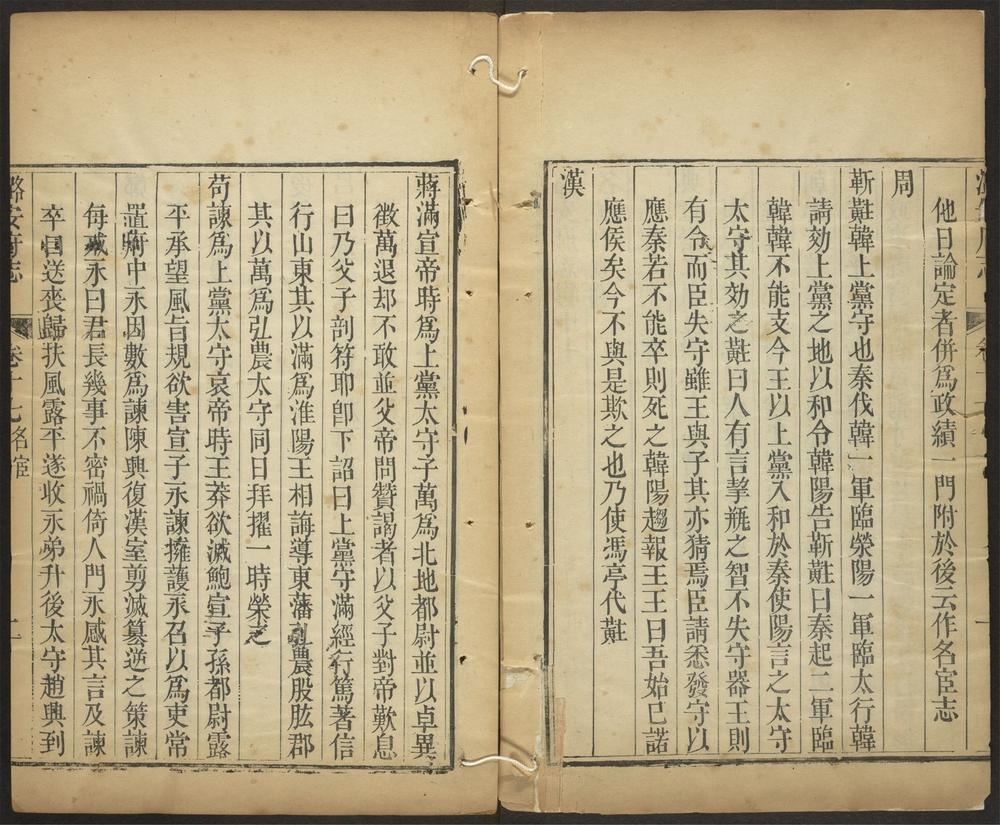 他日論定者併爲政績一門附於後云作名宦志
周
靳黈韓上黨守也秦伐韓一軍臨滎陽一軍臨太行韓
請効上黨之地以和令韓陽告靳黈曰秦起二軍臨
韓韓不能支今王以上黨入和於秦使陽言之太守
太守其効之黈曰人有言挈瓶之智不失守器王則
有令而臣失守雖王與子其亦猜焉臣請悉發守以
應秦若不能卒則死之韓陽趨報王王曰吾始已諾
應侯矣今不與是欺之也乃使馮亭代黈
漢
蔣滿宣帝時爲上黨太守子萬爲北地都尉並以卓異
徴萬退却不敢並父帝問贊謁者以父子對帝歎息
曰乃父子剖符耶卽下詔曰上黨守滿經行篤著信
行山東其以滿爲淮陽王相誨導東藩弘農股肱郡
其以萬爲弘農太守同日拜擢一時榮之
苟諫爲上黨太守哀帝時王莽欲滅鮑宣子孫都尉露
平承望風旨規欲害宣子永諫擁護永召以爲吏常
置府中永因數爲諫陳興復漢室剪滅簒逆之策諫
每戒永曰君長幾事不密禍倚人門永感其言及諫
卒自送喪歸扶風露平遂收永弟升後太守趙興到
潞安府志
卷十七名宦
二